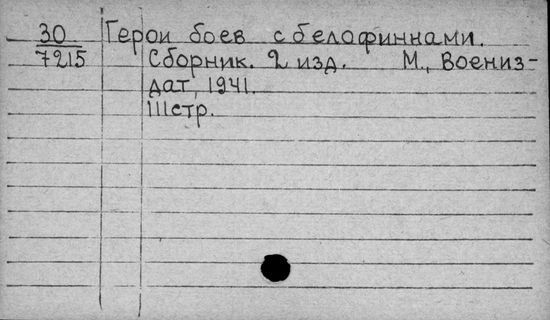 30 Герои боев с белофиннами.
7215 Сборник. 2 изд. М., Воениз-
дат, 1941.
111стр.